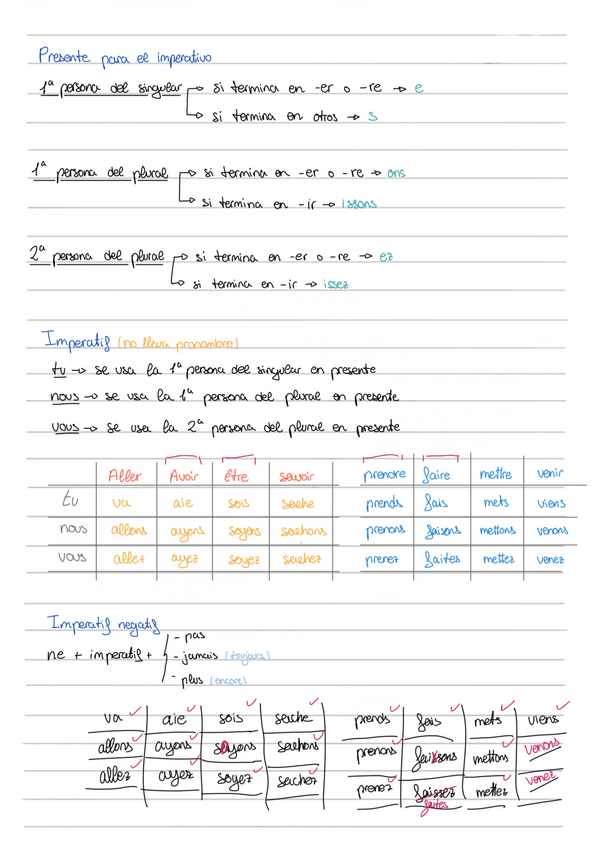 Presente para el imperativo
1ª persona del singular → si termina en -er o -re → e
→ si termina en otros → s
1ª persona del plural → si termina en -er o -re → ons
→ si termina en -ir → issons
2ª persona del plural → si termina en -er o -re → ez
→ si termina en -ir → issez
Imperatif (no lleva pronombre)
tu → se usa la 1ª persona del singular en presente
nous → se usa la 1ª persona del plural en presente
vous → se usa la 2ª persona del plural en presente
Aller Avoir être savoir prendre faire mettre venir
tu va aie sois sache prends fais mets viens
nous allons ayons soyons sachons prenons faisons mettons venons
vous allez ayez soyez sachez prenez faites mettez venez
Imperatif negatif
- pas
ne + imperatif + - jamais (toujours)
- plus (encore)
va aie sois sache prends fais mets viens
allons ayons soyons sachons prenons faissons mettons venons
allez ayez soyez sachez prenez faissez mettez venez
faites